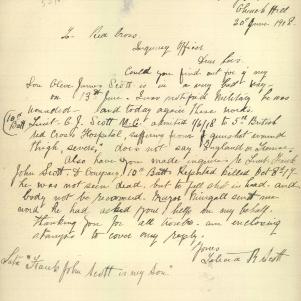 20 June 1918.
To Red Cross.
Inquiry Officer
Dear Sir.
Could you find out for me if my
Son Clive James Scott is in a very bad way
on 13th June. was notified Military he was
wounded and today again these words
Lieut. C. J. Scott M.C. admitted 16/6/18 to 5th British
10th Batt
red Cross Hospital, suffering from gunshot wound
thigh, severe," does not say England or France.
Also have you made inquiries re Lieut Frank
John Scott. D Company, 10th Batt. Reported killed Oct 8th 17.
he was not seen dead, but to fall shot in head, and
body not be recovered. Major Pinigall sent me
word he had asked your help on my behalf.
thanking you for all trouble. am enclosing
stamps to cover any reply.
Yours
Scott
Late "Frank John Scott is my Son"